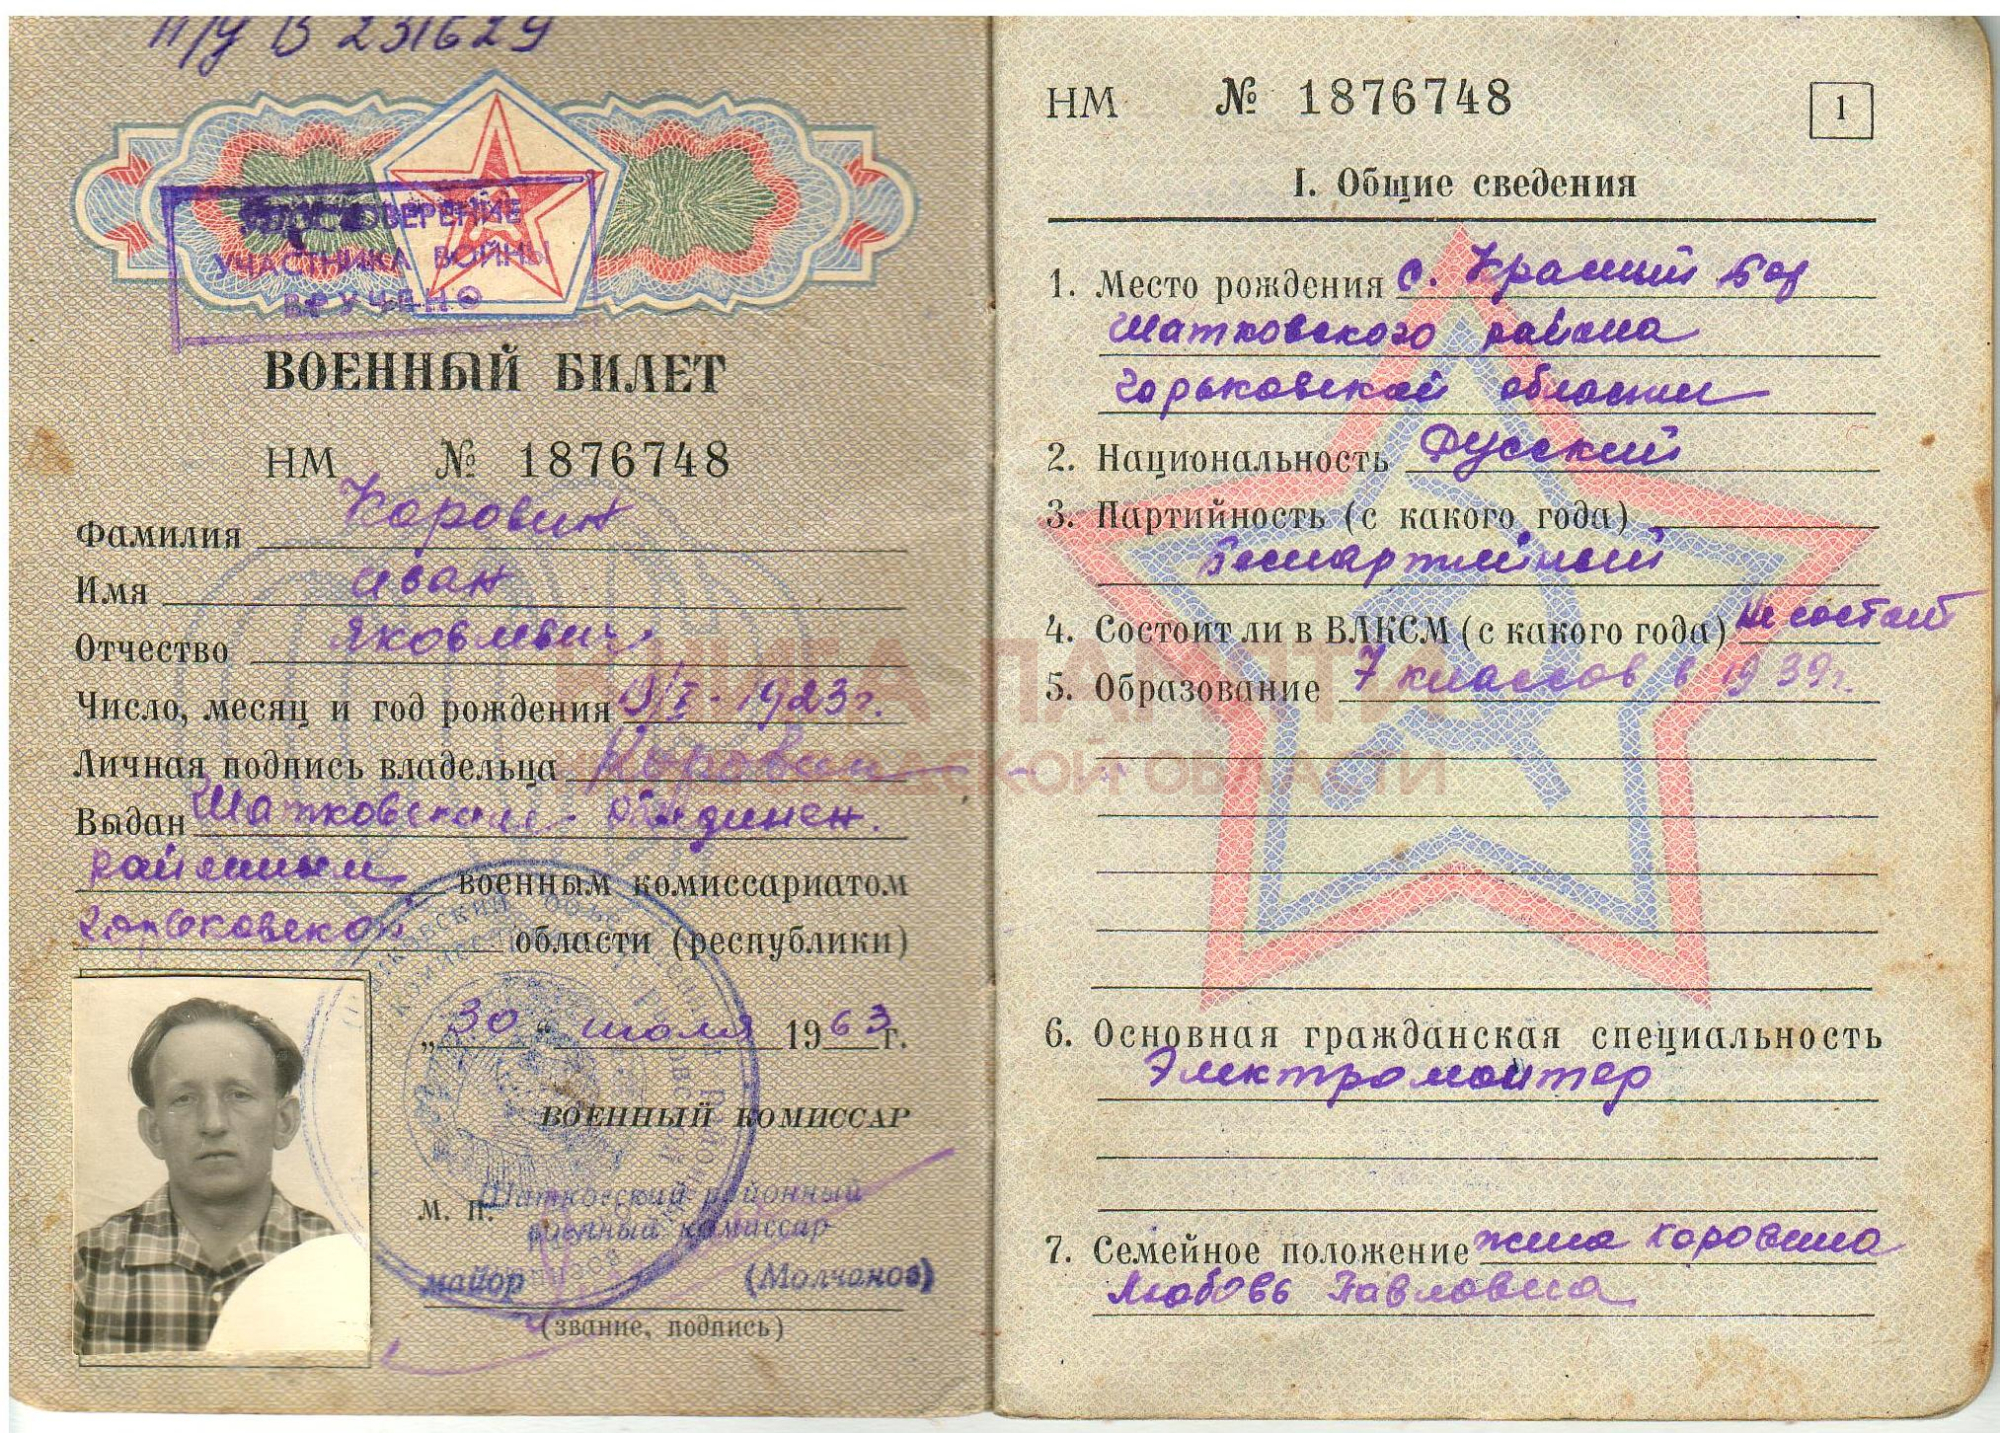 П/У В 231629
УДОСТОВЕРЕНИЕ
УЧАСТНИКА ВОЙНЫ
ВРУЧЕНО
ВОЕННЫЙ БИЛЕТ
НМ № 1876748
Фамилия Коровин
Имя Иван
Отчество Яковлевич
Число, месяц и год рождения 19/I - 1923 г.
Личная подпись владельца Коровин
Выдан Шатковским объединен.
районным военным комиссариатом
Горьковской области (республики)
„30“ июля 1963 г.
ВОЕННЫЙ КОМИССАР
М. П. Шатковский районный
военный комиссар
майор (Молчанов)
(звание, подпись)
НМ № 1876748
1
I. Общие сведения
1. Место рождения с. Красный Бор
Шатковского района
Горьковской области
2. Национальность Русский
3. Партийность (с какого года)
Беспартийный
4. Состоит ли в ВЛКСМ (с какого года) Не состоит
5. Образование 7 классов в 1939 г.
6. Основная гражданская специальность
Электромонтер
7. Семейное положение жена Коровина
Любовь Павловна
КНИГА ПАМЯТИ
НИЖЕГОРОДСКОЙ ОБЛАСТИ